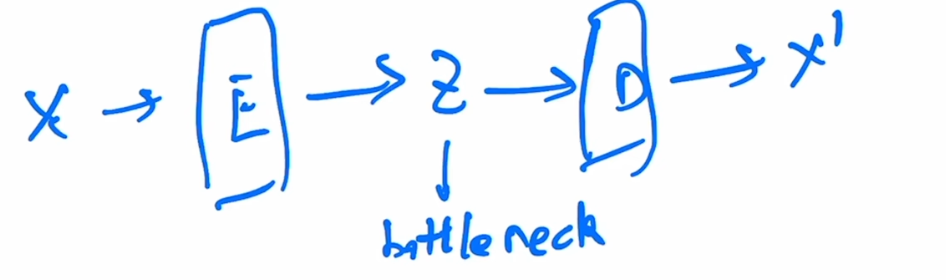 X → E → Z → D → X'
↓
bottleneck